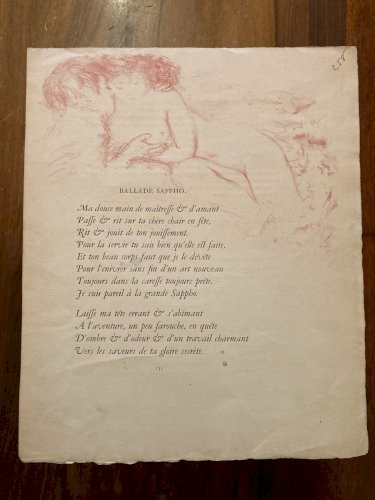 258
BALLADE SAPPHO.
Ma douce main de maîtresse & d'amant
Passe & rit sur ta chère chair en fête,
Rit & jouit de ton jouissement.
Pour la servir tu sais bien qu'elle est faite,
Et ton beau corps faut que je le dévête
Pour l'enivrer sans fin d'un art nouveau
Toujours dans la caresse toujours prête.
Je suis pareil à la grande Sappho.
Laisse ma tête errant & s'abîmant
A l'aventure, un peu farouche, en quête
D'ombre & d'odeur & d'un travail charmant
Vers les saveurs de ta gloire secrète.